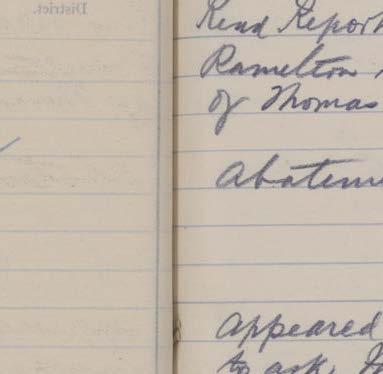 District.
Read Report
Ramelton
of Thomas
Abateme
Appeared
to ask